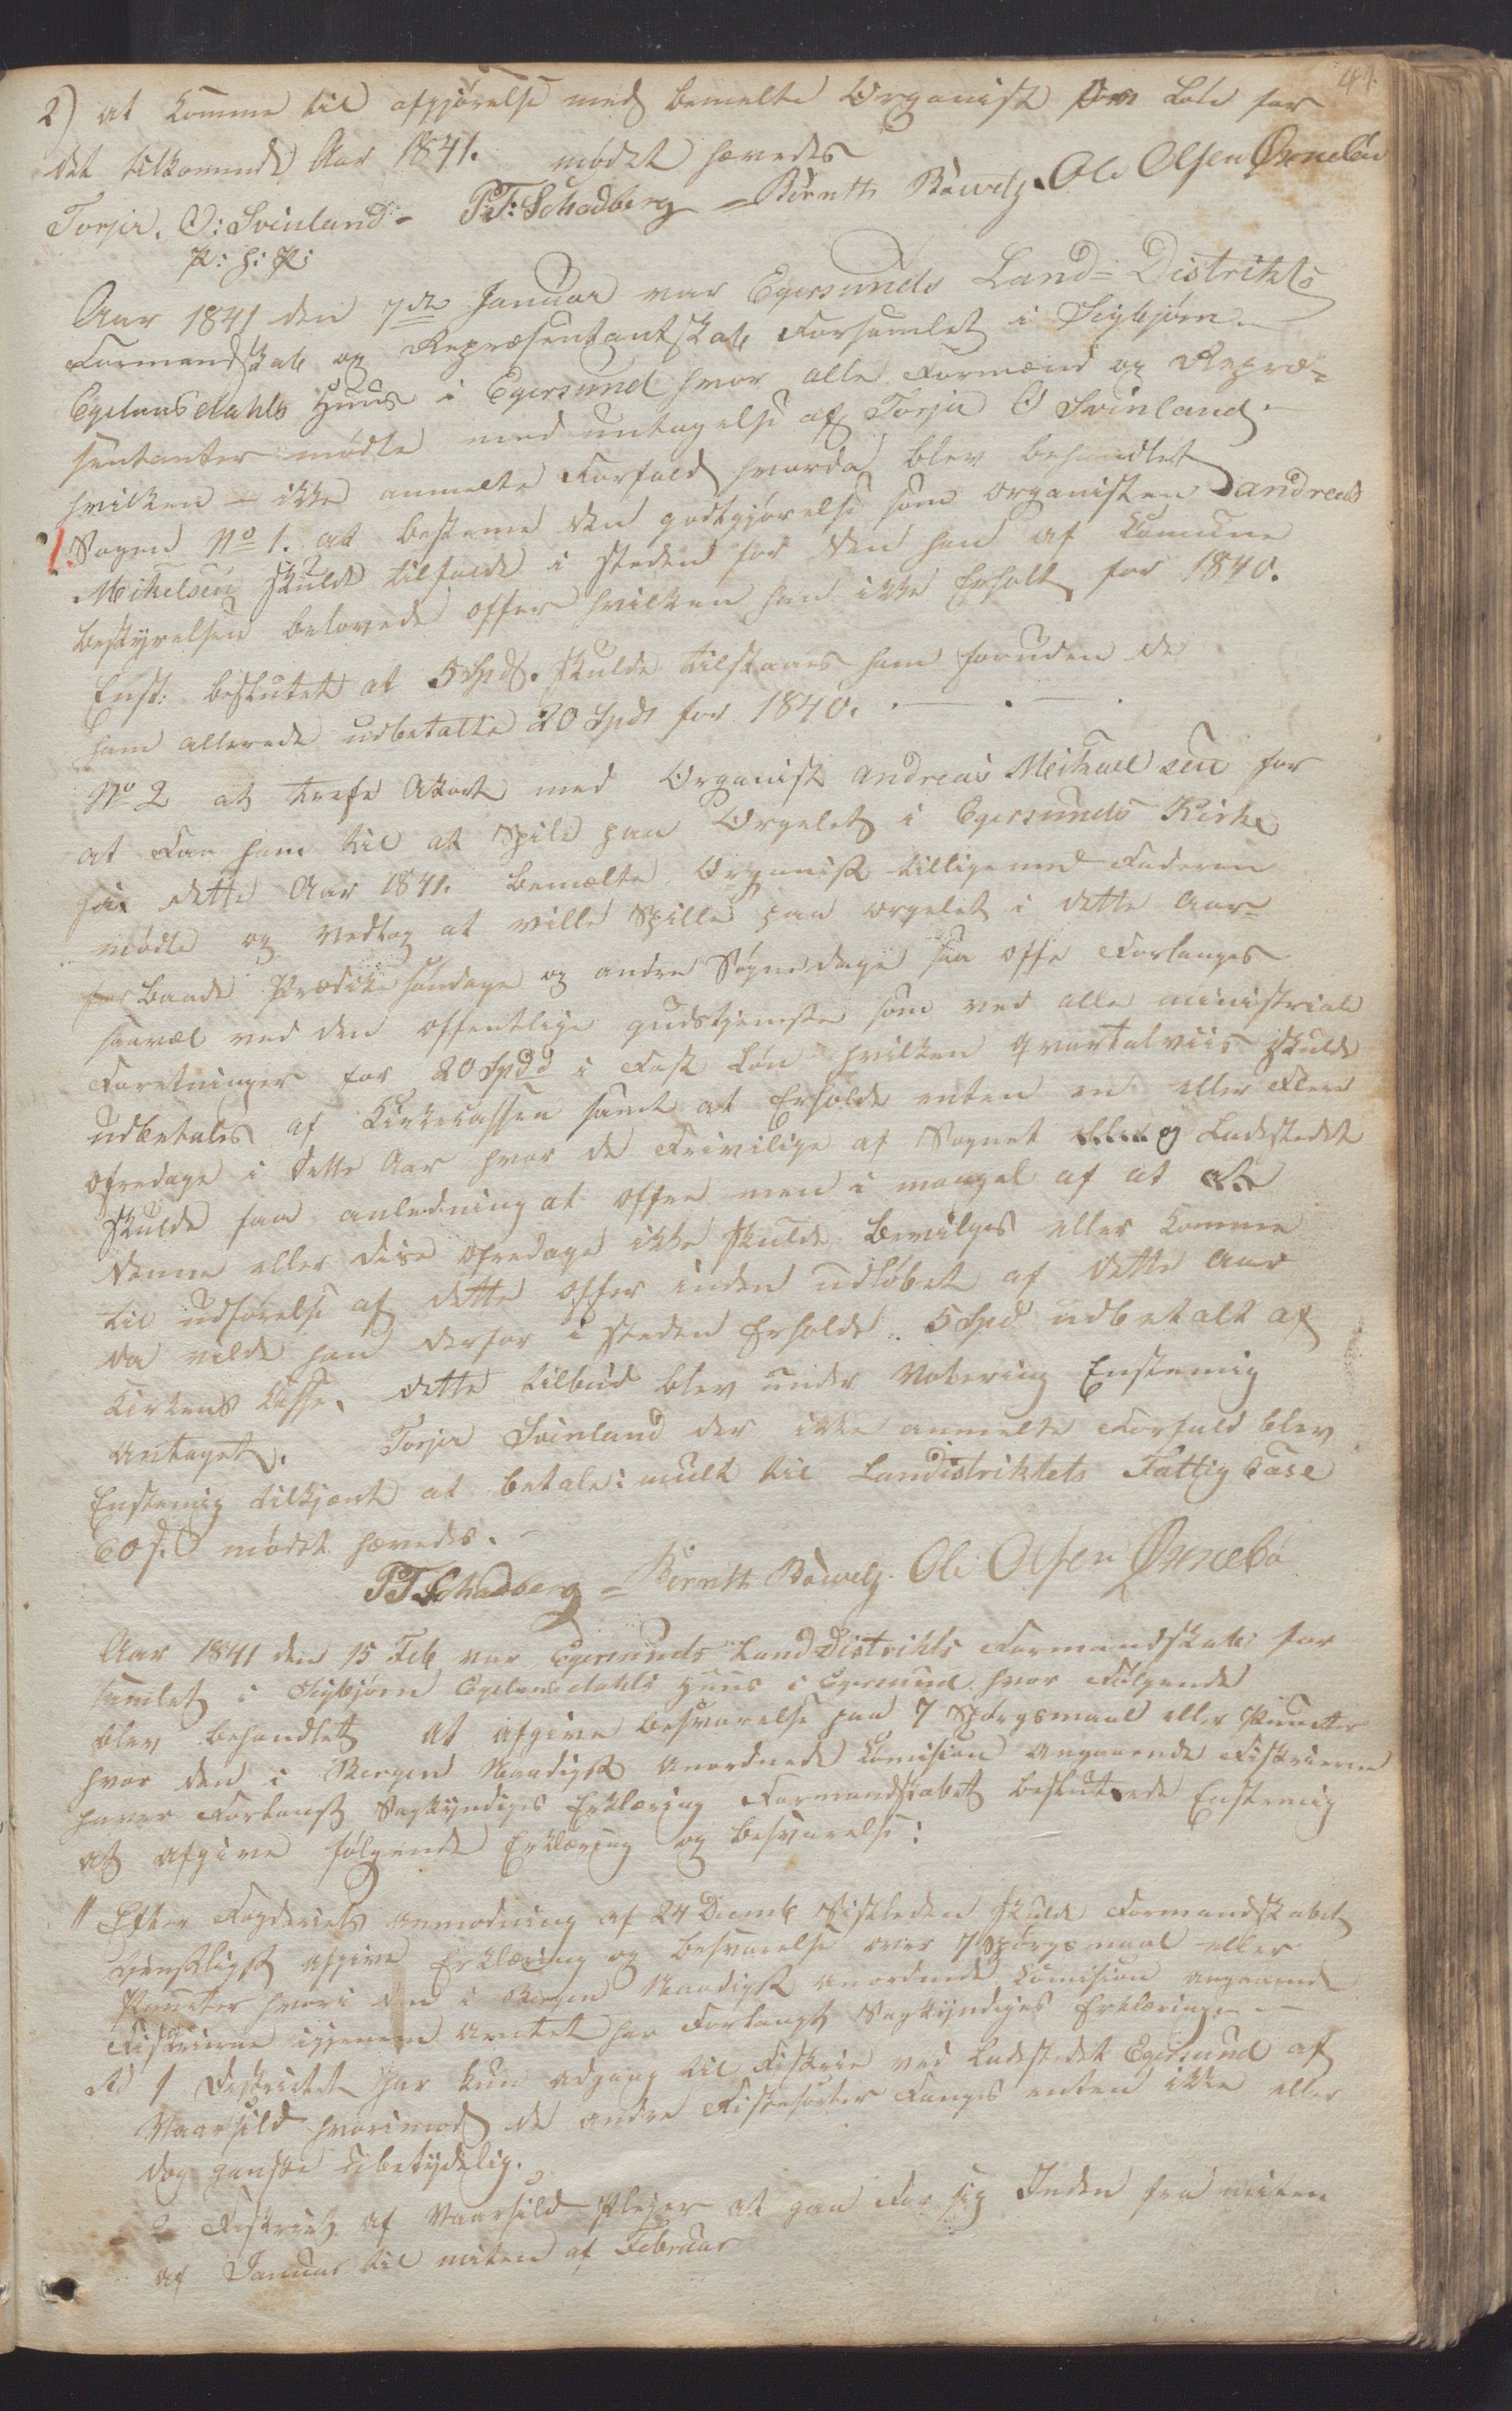 41.
2) at komme til afgjørelse med bemelte Organist om Løn for
det tilkomende Aar 1841. mødet hævedes
Torjer. O: Svinland - P.T: Schadberg - Berntth Bowitz. Ole Olsen Øxnebøe
p: h: P:
Aar 1841 den 7de Januar var Egersunds Land-Distrikts
Formandskab og Repræsentantskab Forsamlet i Sigbjørn
Egelandsdahls Huus i Egersund hvor alle Formænd og Repræ-
sentanter mødte med untagelse af Torjer O Svinland
hvilken ikke anmelte Forfald hvorda blev behandlet
Sagen No 1. at besteme den godtgjørelse som organisten andreas
Meikelsen skulde tilfalde i steden for den han af Comune
bestyrelsen belovede offer hvilken han ikke Erholt for 1840.
Enst: besluttet at 5 Spd. skulde tilstaaes ham foruden de
ham allerede udbetalte 20 Spd for 1840.
No 2 at trefe Akort med Organist andreas Meikaelsen for
at Faa ham til at Spile paa Orgelet i Egersunds Kirke
for dette Aar 1841. bemelte Organist tilligemed Faderen
mødte og vedtog at ville Spille paa orgelet i dette Aar
for baade Prædike søndage og andre Søgnedage saa ofte Forlanges
saavel ved den offentlige gudstjeneste som ved alle ministriale
Foretninger for 20 Spdd i Fast Løn hvilken qvartalviis skulde
udbetales af Kirkecassen samt at Erholde enten en eller Flere
ofredage i dette Aar hvor de Frivilige af Sognet og Ladestedet
skulde faa anledning at offre men i mangel af at
denne eller disse ofredage ikke skulde bevilges eller komme
til udførelse af dette offer inden udløbet af dette Aar
da vilde han derfor i steden Erholde 5 Spd udbetalt af
Kirkens Casse. dette tilbud blev under Votering Enstemig
Antaget. Torjer Svinland der ikke anmelte Forfald blev
Enstemig tilkjent at betale i mult til Landistriktets Fattig Case
60 s. mødet hævedes.
P T Schadberg - Berntth Bowitz. Ole Olsen Øxnebø
Aar 1841 den 15 Feb var Egersunds Land Distrikts Formandskab for
samlet i Sigbjørn Egelandsdahls Huus i Egersund hvor Følgende
blev behandlet at afgive besvarelse paa 7 Spørgsmaal eller Puncter
hvor den i Bergen Naadigst Anordnede Comision Angaaende Fiskrierne
haver Forlangt Sagkyndiges Erklæring Formandskabet besluttede Enstemig
at afgive følgende Erklæring og besvarelse:
" Efter Fogderiets anmodning af 24 Decemb Sistleden skulde Formandskabet
Gunstligst afgive Erklæring og besvarelse over 7 Spørgsmaal eller
Puncter hvori den i Bergen Naadigst Anordnede Comision angaaende
Fiskrierne igjenem Amtet har Forlangt Sagkyndiges Erklæring
Ad 1 Distriktet har kun adgang til Fiskrie ved Ladestedet Egersund af
Vaarsild hvorimod de andre Fiskesorter Fanges enten ikke eller
dog ganske Ubetydelig.
- 2 Fiskriet af Vaarsild Plejer at gaa For sig Inden fra miten
af Januar til miten af Februar